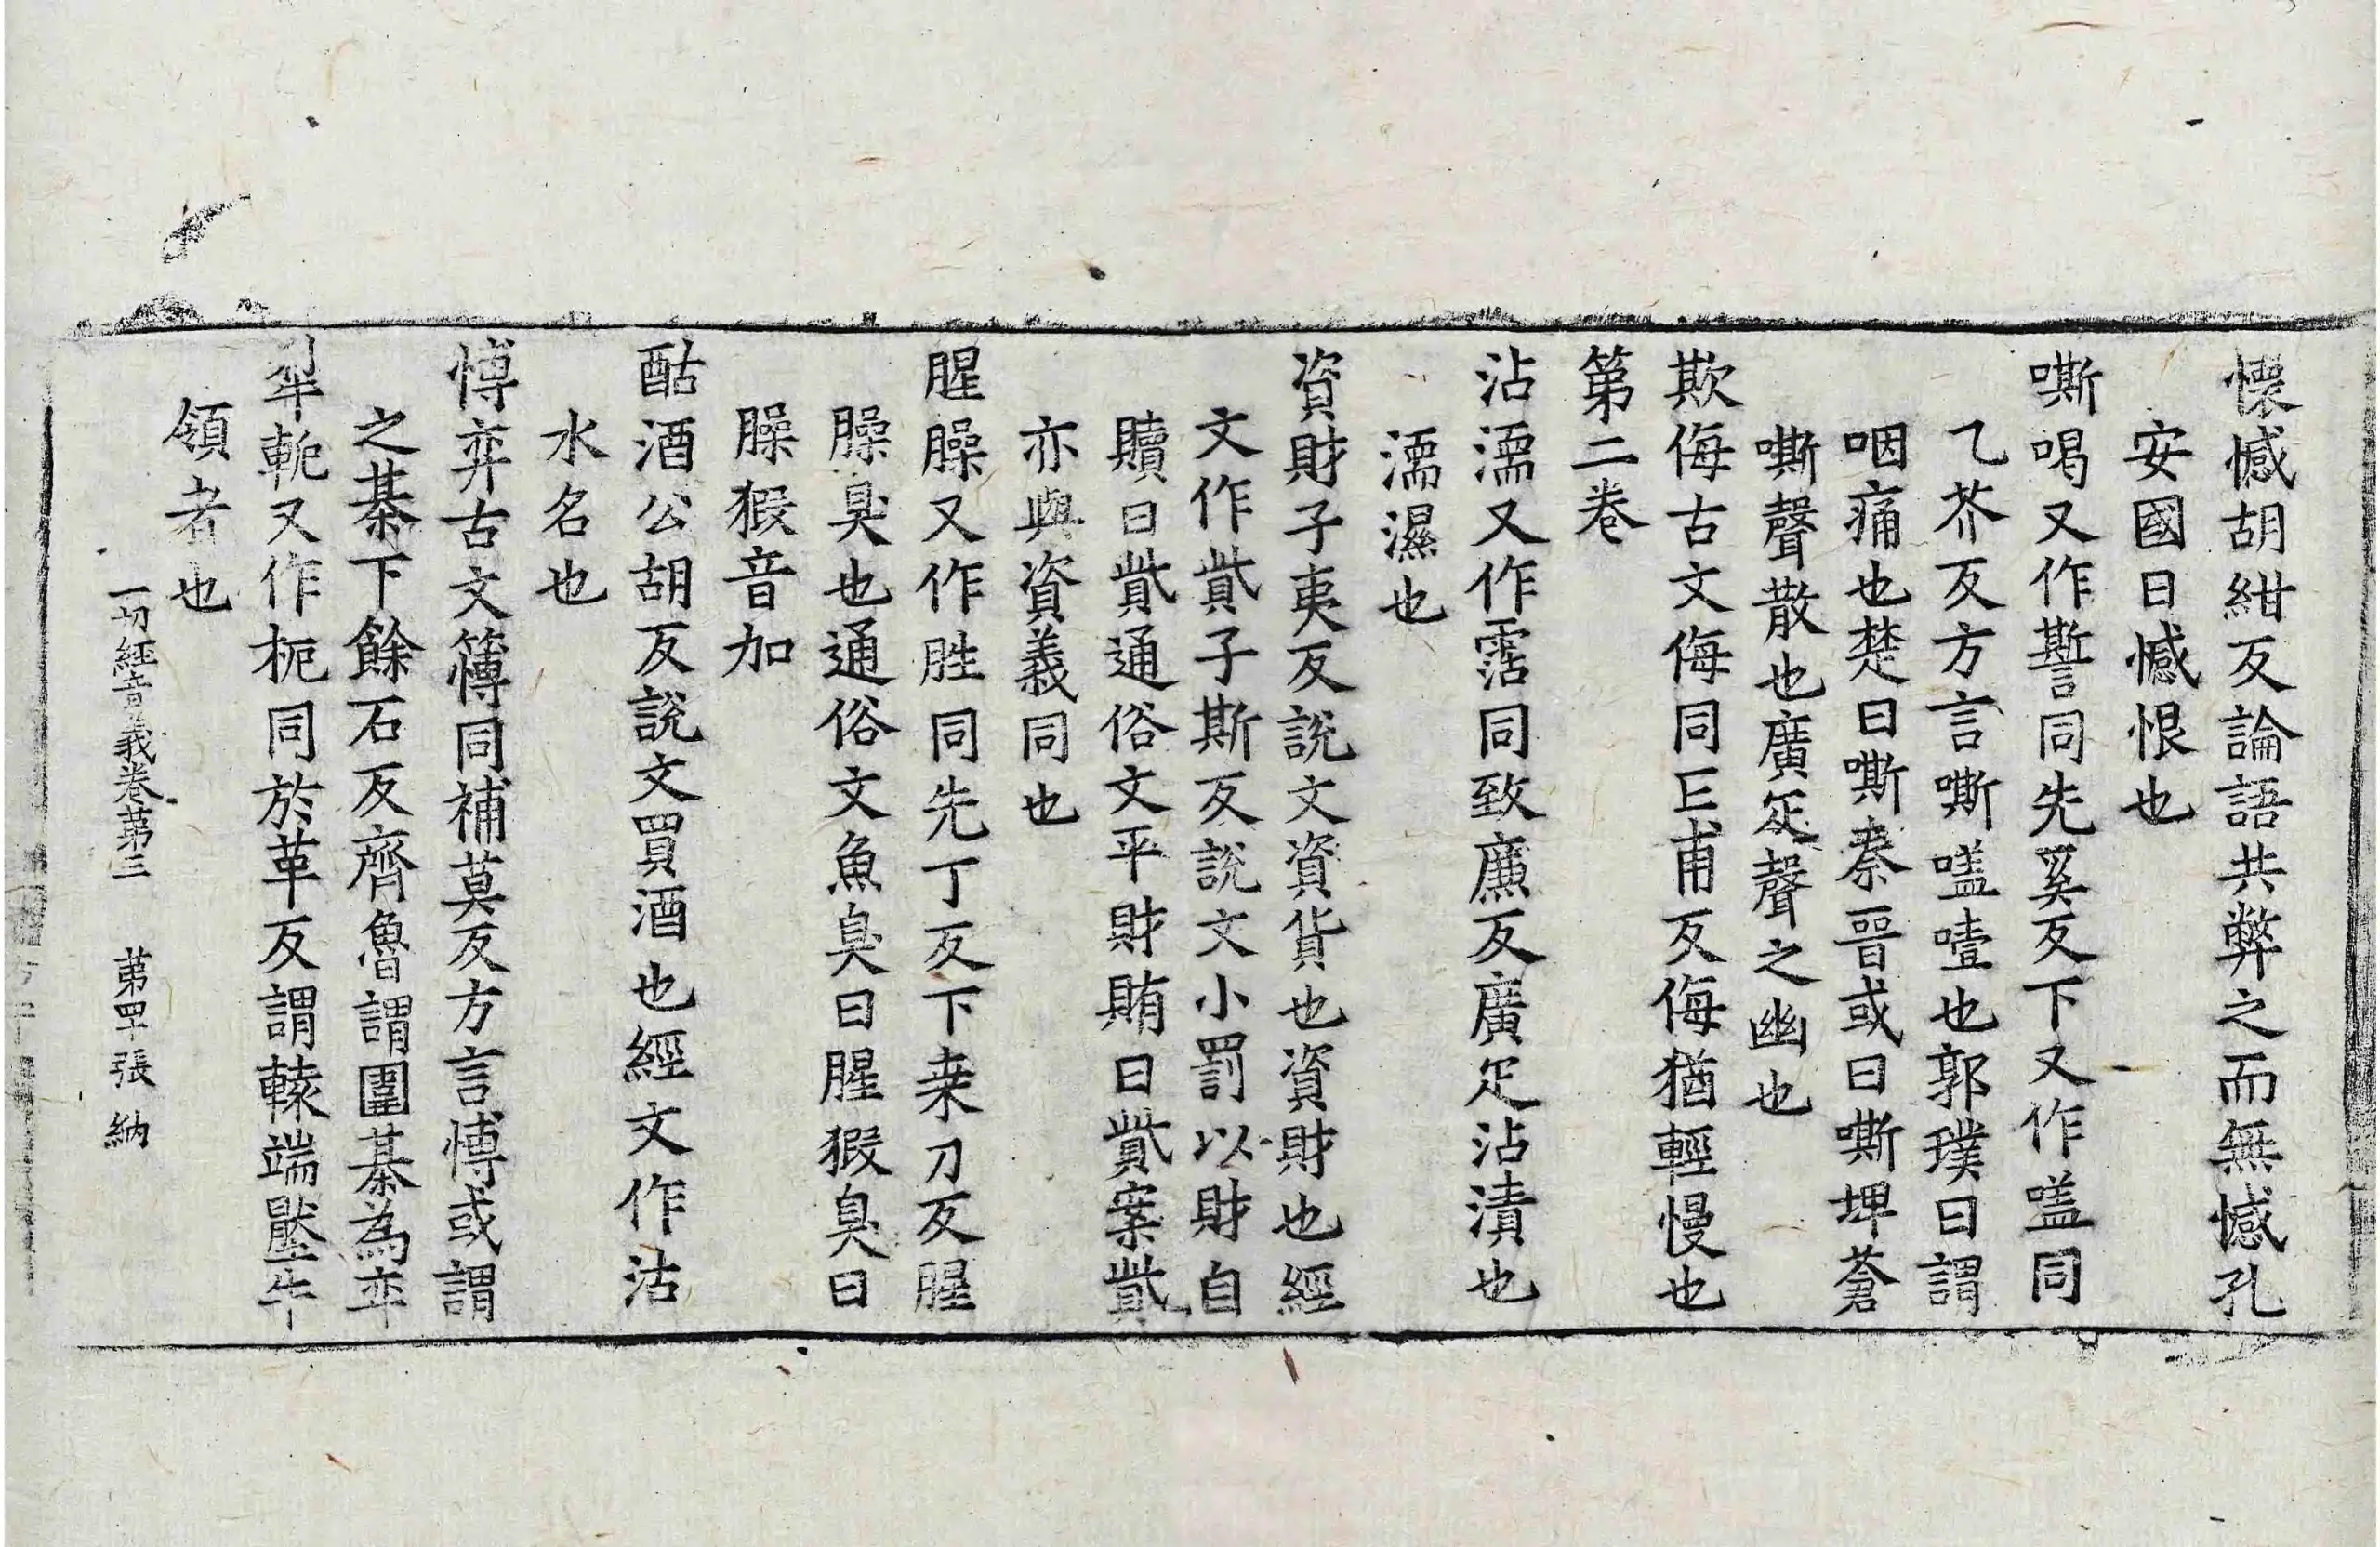 懷憾胡紺反論語共弊之而無憾孔
安國曰憾恨也
嘶喝又作㽄同先奚反下又作嗑同
乙芥反方言嘶嗑噎也郭璞曰謂
咽痛也楚曰嘶秦晉或曰嘶埤蒼
嘶聲散也廣疋聲之幽也
欺侮古文侮同亡甫反侮猶輕慢也
第二卷
沾濡又作霑同致廉反廣疋沾漬也
濡濕也
資財子夷反說文資貨也資財也經
文作貲子斯反說文小罰以財自
贖曰貲通俗文平財賄曰貲案貲
亦與資義同也
腥臊又作胜同先丁反下桒刀反腥
臊臭也通俗文魚臭曰腥猳臭曰
臊猳音加
酤酒公胡反說文買酒也經文作沽
水名也
愽弈古文簙同補莫反方言愽或謂
之棊下餘石反齊魯謂圍棊為弈
犁軛又作枙同於革反謂轅端壓牛
領者也
一切經音義卷第三 第四十張 納